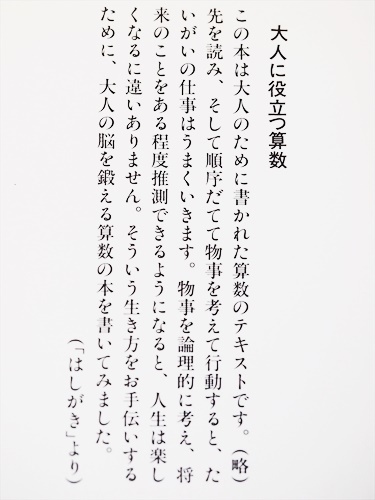 大人に役立つ算数
この本は大人のために書かれた算数のテキストです。(略)
先を読み、そして順序だてて物事を考えて行動すると、た
いがいの仕事はうまくいきます。物事を論理的に考え、将
来のことをある程度推測できるようになると、人生は楽し
くなるに違いありません。そういう生き方をお手伝いする
ために、大人の脳を鍛える算数の本を書いてみました。
(「はしがき」より)